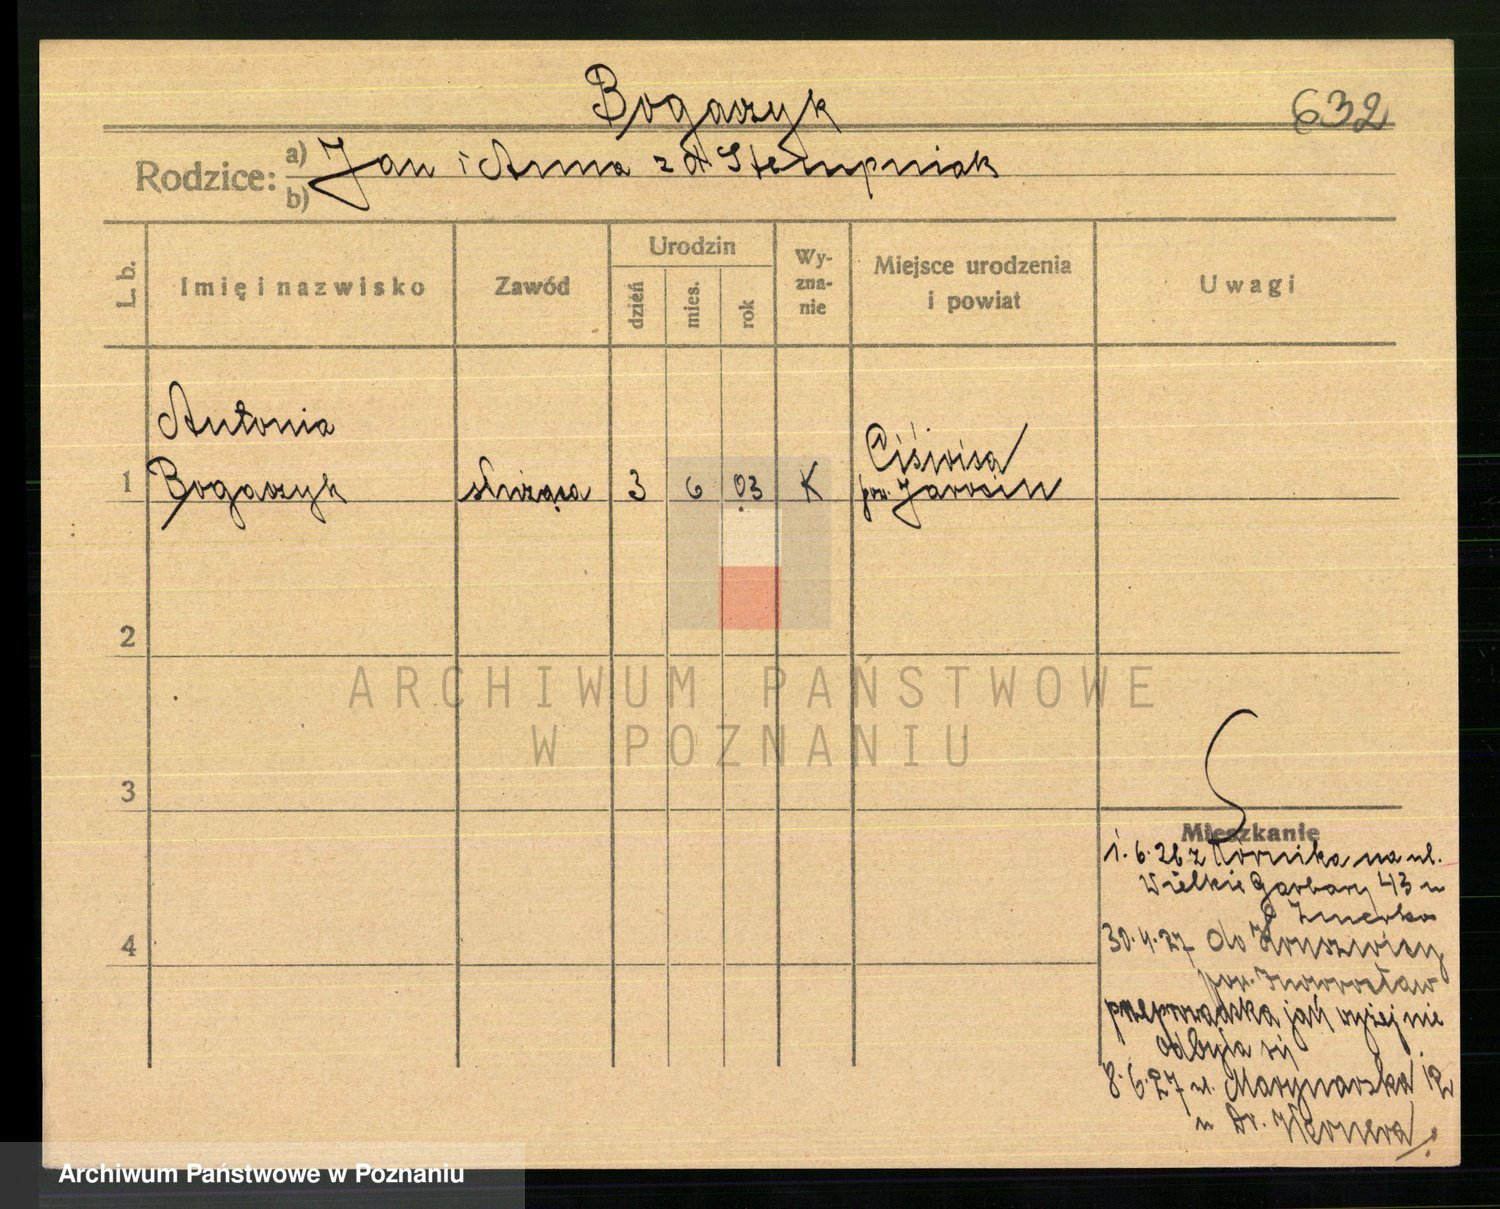 Bogaczyk
632
Rodzice: a) Jan i Anna z d Stempniak
b)
L. b.
Imię i nazwisko
Zawód
Urodzin
dzień
mies.
rok
Wy-
zna-
nie
Miejsce urodzenia
i powiat
Uwagi
Antonia
1 Bogaczyk służąca 3 6 03 K Ciświca
pow. Jarocin
2
ARCHIWUM PAŃSTWOWE
W POZNANIU
3
Mieszkanie
1.6.26 z Kórnika na ul.
Wielkie Garbary 43 u
4
30.4.27 do
pow. Inowrocław
przeprowadzka jak wyżej nie
odbyła się
8.6.27 ul. Marynarska 12
u Dr. Wernera
Archiwum Państwowe w Poznaniu